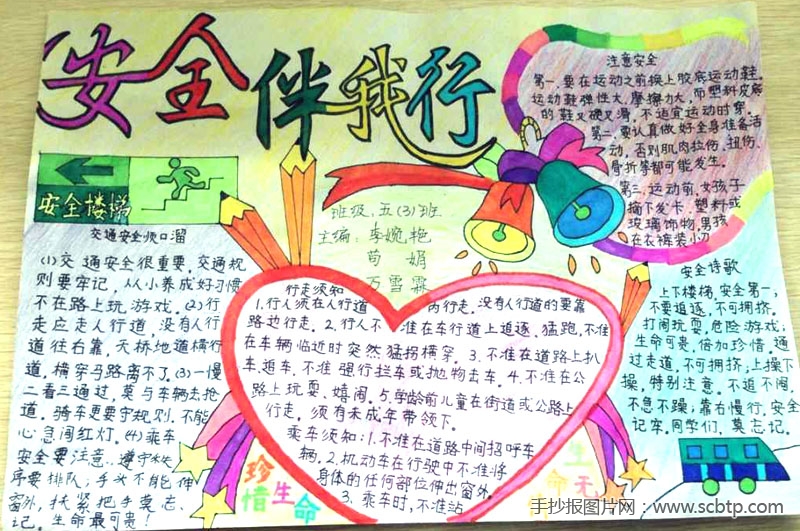 安全伴我行
安全楼梯
班级：五(3)班
主编：李婉艳
苟娟
万雪霖
交通安全顺口溜
(1)交通安全很重要，交通规
则要牢记，从小养成好习惯
不在路上玩游戏。(2)行
走应走人行道，没有人行
道往右靠，天桥地道横行
道，横穿马路离不了。(3)一慢
二看三通过，莫与车辆去抢
道。骑车更要守规则，不能
心急闯红灯。(4)乘车
安全要注意，遵守
序要排队；手头不能伸
窗外，扶紧把手莫忘
记。生命最可贵！
行走须知
1.行人须在人行道内行走，没有人行道的要靠
路边行走。2.行人不准在车行道上追逐、猛跑，不准
在车辆临近时突然猛拐横穿。3.不准在道路上扒
车、追车，不准强行拦车或抛物击车。4.不准在公
路上玩耍、嬉闹。5.学龄前儿童在街道或公路上
行走，须有未成年带领下。
乘车须知：1.不准在道路中间招呼车
辆。2.机动车在行驶中不准将
身体的任何部位伸出窗外。
3.乘车时，不准站
珍惜生命
生命无
注意安全
第一，要在运动之前换上胶底运动鞋。
运动鞋弹性大，摩擦力大，而塑料皮底
的鞋又硬又滑，不适宜运动时穿。
第二，要认真做好全身准备活
动，否则肌肉拉伤、扭伤、
骨折等都可能发生。
第三，运动前，女孩子
摘下发卡，塑料或
玻璃饰物，男孩
在衣裤装小刀
安全诗歌
上下楼梯，安全第一，
不要追逐，不可拥挤。
打闹玩耍，危险游戏；
生命可贵，倍加珍惜。通
过走道，不可拥挤；上操下
操，特别注意。不追不闹，
不急不躁；靠右慢行，安全
记牢。同学们，莫忘记。
手抄报图片网：www.scbtp.com